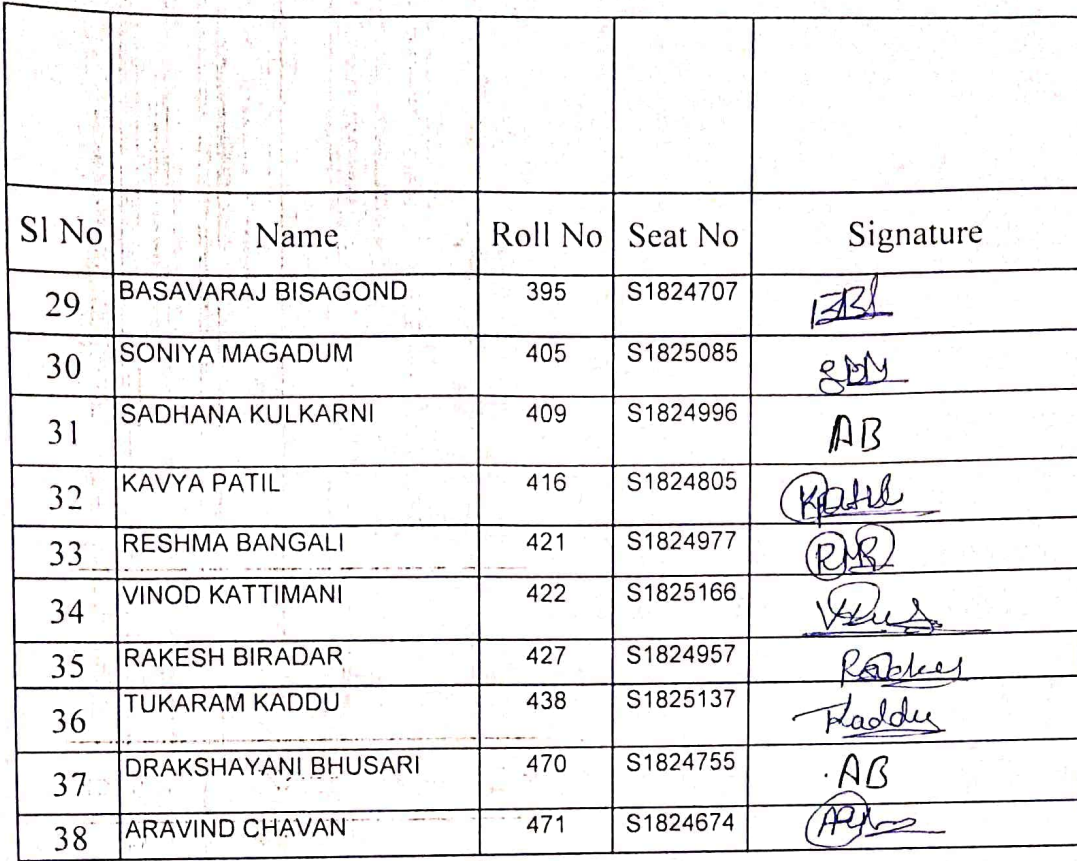 Sl No Name Roll No Seat No Signature
29 BASAVARAJ BISAGOND 395 S1824707 BBS
30 SONIYA MAGADUM 405 S1825085
31 SADHANA KULKARNI 409 S1824996 AB
32 KAVYA PATIL 416 S1824805 KPatil
33 RESHMA BANGALI 421 S1824977
34 VINOD KATTIMANI 422 S1825166
35 RAKESH BIRADAR 427 S1824957
36 TUKARAM KADDU 438 S1825137 Kaddu
37 DRAKSHAYANI BHUSARI 470 S1824755 AB
38 ARAVIND CHAVAN 471 S1824674